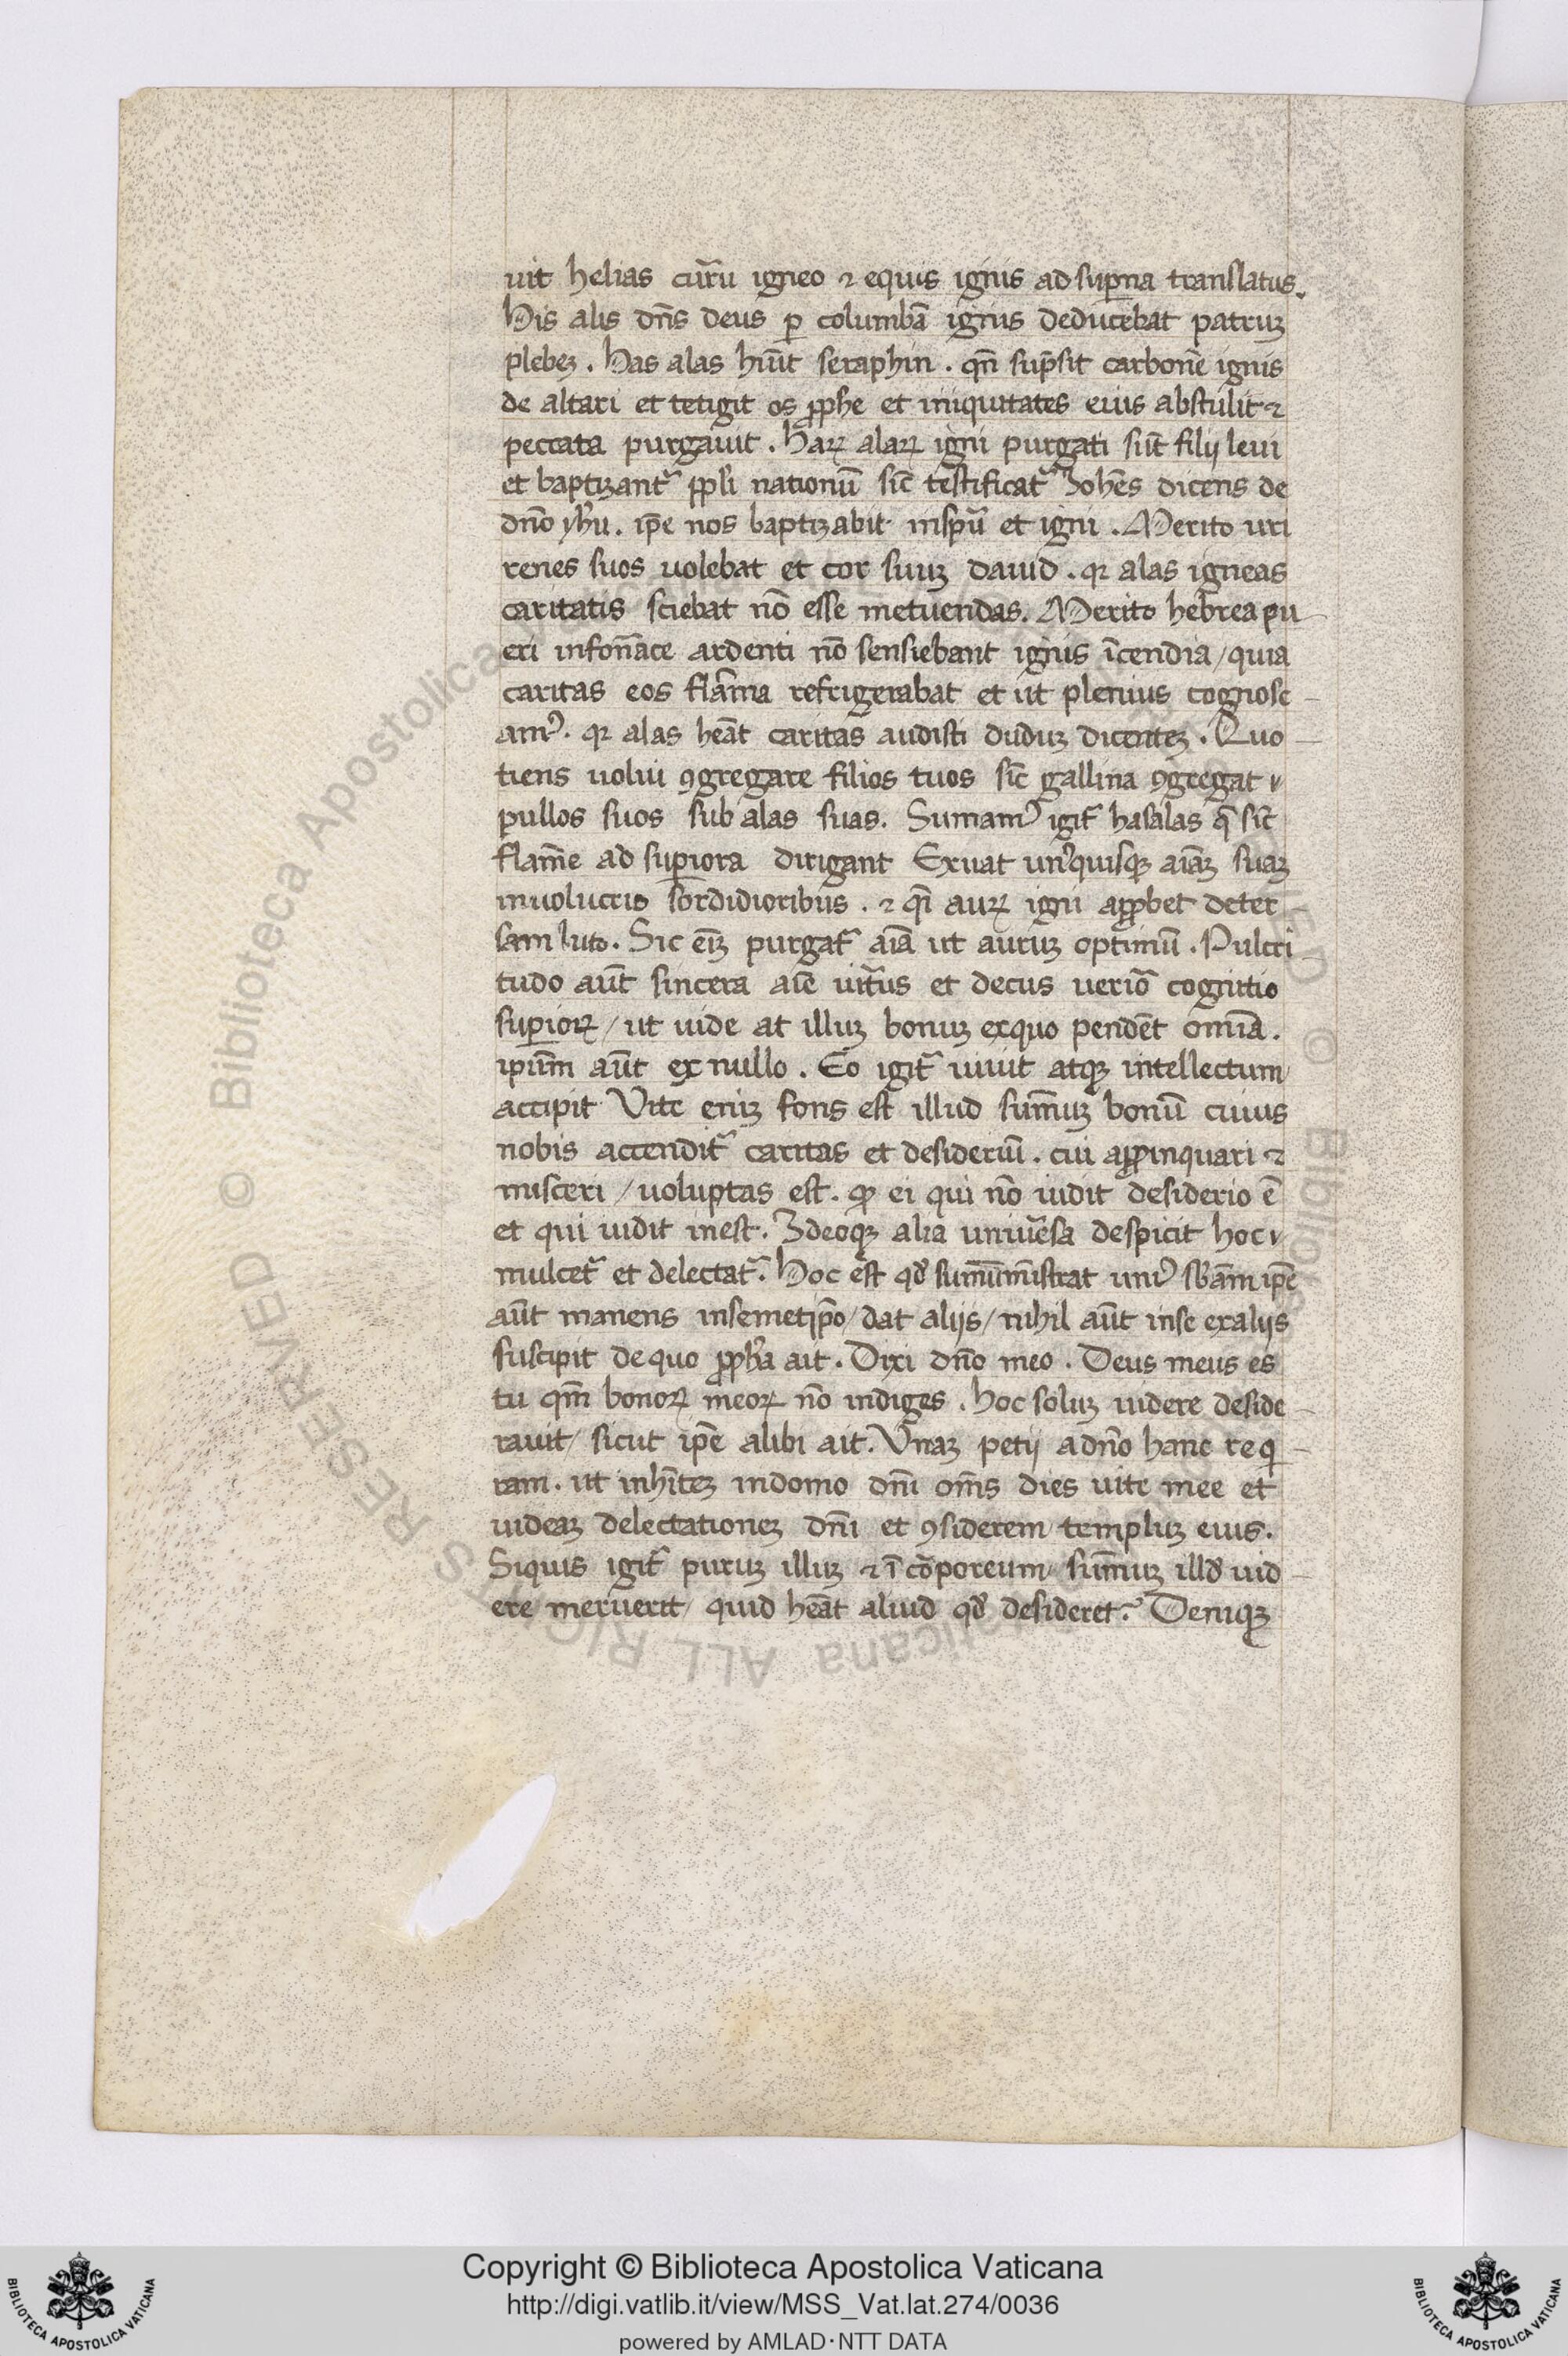 uit helias cur̃u igneo ⁊ equis ignis ad supna translatus.
His alis dñs deus ꝑ columbã ignis deducebat patruꝫ
plebeꝫ. Has alas hñt seraphin. qñ supsit carbonẽ ignis
de altari et tetigit os ꝓphe et iniquitates eius abstulit ⁊
peccata purgauit. Haꝝ alaꝝ igni purgati sũt filij leui
et baptizant̃ ppl̃i nationũ sic̃ testificat̃ Joh̃es dicens de
dño yh̃u. ip̃e nos baptizabit in sp̃u et igni. Merito uri
renes suos uolebat et cor suuꝫ dauid. qꝛ alas igneas
caritatis sciebat nõ esse metuendas. Merito hebrea pu
eri in fornãce ardenti nõ sensiebant ignis ĩcendia / quia
caritas eos flãma refrigerabat et ut plenius cognosc
amꝰ. qꝛ alas heãt caritas audisti duduꝫ dicenteꝫ. Quo
tiens uolui ꝯgregare filios tuos sic̃ gallina ꝯgregat
pullos suos sub alas suas. Sumamꝰ igit̃ has alas q̃ sic̃
flam̃e ad supiora dirigant Exuat unꝰquisqꝫ aĩaꝫ suaꝫ
inuolucris sordidioribus. ⁊ q̃i auꝝ igni apꝓbet deter
sam luto. Sic eĩꝫ purgat̃ aĩa ut auruꝫ optimũ. Pulcri
tudo aũt sincera aĩe uirt̃us et decus uerior̃ cognitio
superioꝝ / ut uide at illuꝫ bonuꝫ ex quo pendẽt omĩa.
ipsum̃ aũt ex nullo. Eo igit̃ uiuit atqꝫ intellectum
accipit Vite eniꝫ fons est illud sum̃uꝫ bonũ cuius
nobis accendit̃ caritas et desideriũ. cui apꝓpinquari ⁊
misceri / uoluptas est. qꝫ ei qui nõ uidit desiderio ẽ
et qui uidit inest. Jdeoqꝫ alia uniũesa despicit hoc
mulcet̃ et delectat̃. Hoc est qđ sum̃inĩstrat uniꝰ sb̃am ip̃e
aũt manens in semetip̃o / dat alijs / nihil aũt in se ex alijs
suscipit de quo ꝓph̃a ait. Dixi dño meo. Deus meus es
tu qm̃ bonoꝝ meoꝝ nõ indiges. hoc soluꝫ uidere deside
rauit / sicut ip̃e alibi ait. Vnaꝫ petij a dño hanc req̇
ram. ut inhĩteꝫ in domo dñi om̃s dies uite mee et
uideaꝫ delectationeꝫ dñi et ꝯsiderem templuꝫ eius.
Siquis igit̃ puruꝫ illuꝫ ⁊ ĩcorporeum sum̃uꝫ illđ uid
ere meruerit / quid heãt aliud qđ desideret. Deniqꝫ
Copyright © Biblioteca Apostolica Vaticana
http://digi.vatlib.it/view/MSS_Vat.lat.274/0036
powered by AMLAD·NTT DATA
BIBLIOTECA APOSTOLICA VATICANA
BIBLIOTECA APOSTOLICA VATICANA
© Biblioteca Apostolica Vaticana ALL RIGHTS RESERVED